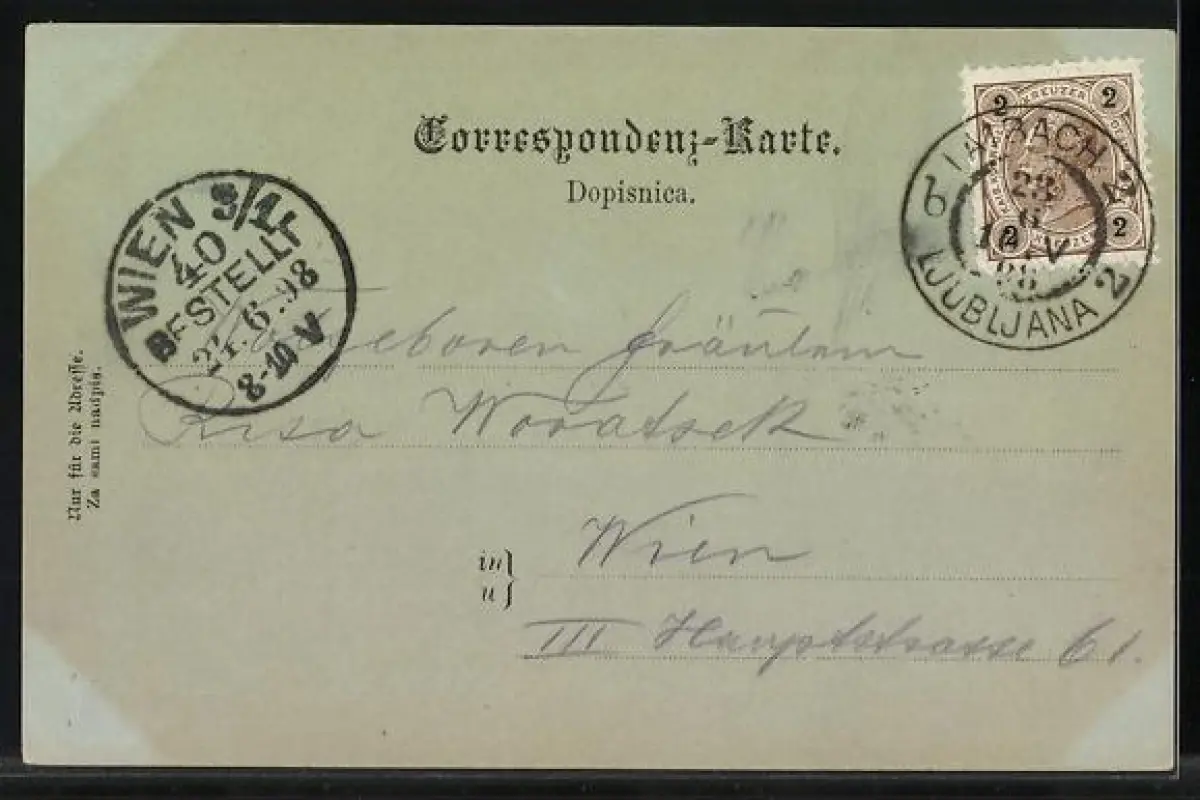 Correspondenz-Karte.
Dopisnica.
2 KREUZER 2
2 2
LAIBACH 2
b
23
6
V
98
LJUBLJANA 2
WIEN 3/1
40
BESTELLT
24.6.98
8-10 V
Nur für die Adresse.
Za sami nadpis.
Fräulein
Rusa Woratschek
in
u
Wien
III Hauptstrasse 61.